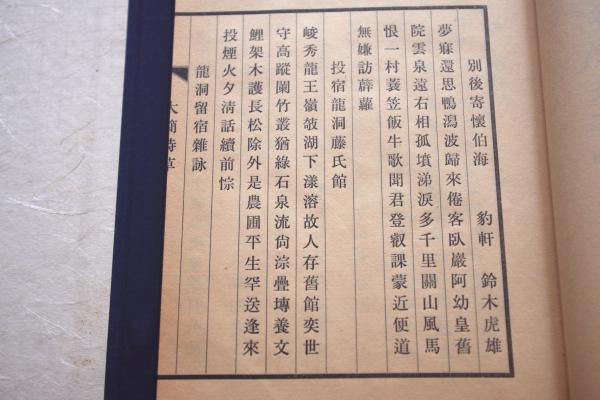 別後寄懷伯海　豹軒　鈴木虎雄
夢寐還思鴨潟波歸來倦客臥巖阿幼皇舊
院雲泉遠右相孤墳涕淚多千里關山風馬
恨一村蓑笠飯牛歌聞君登叡課蒙近便道
無嫌訪薜蘿
投宿龍洞藤氏館
峻秀龍王嶺攲湖下漾溶故人存舊館奕世
守高蹤闌竹叢猶綠石泉流尙淙疊塼養文
鯉架木護長松除外是農圃平生罕送逢來
投煙火夕淸話續前悰
龍洞留宿雜詠
大簡詩草